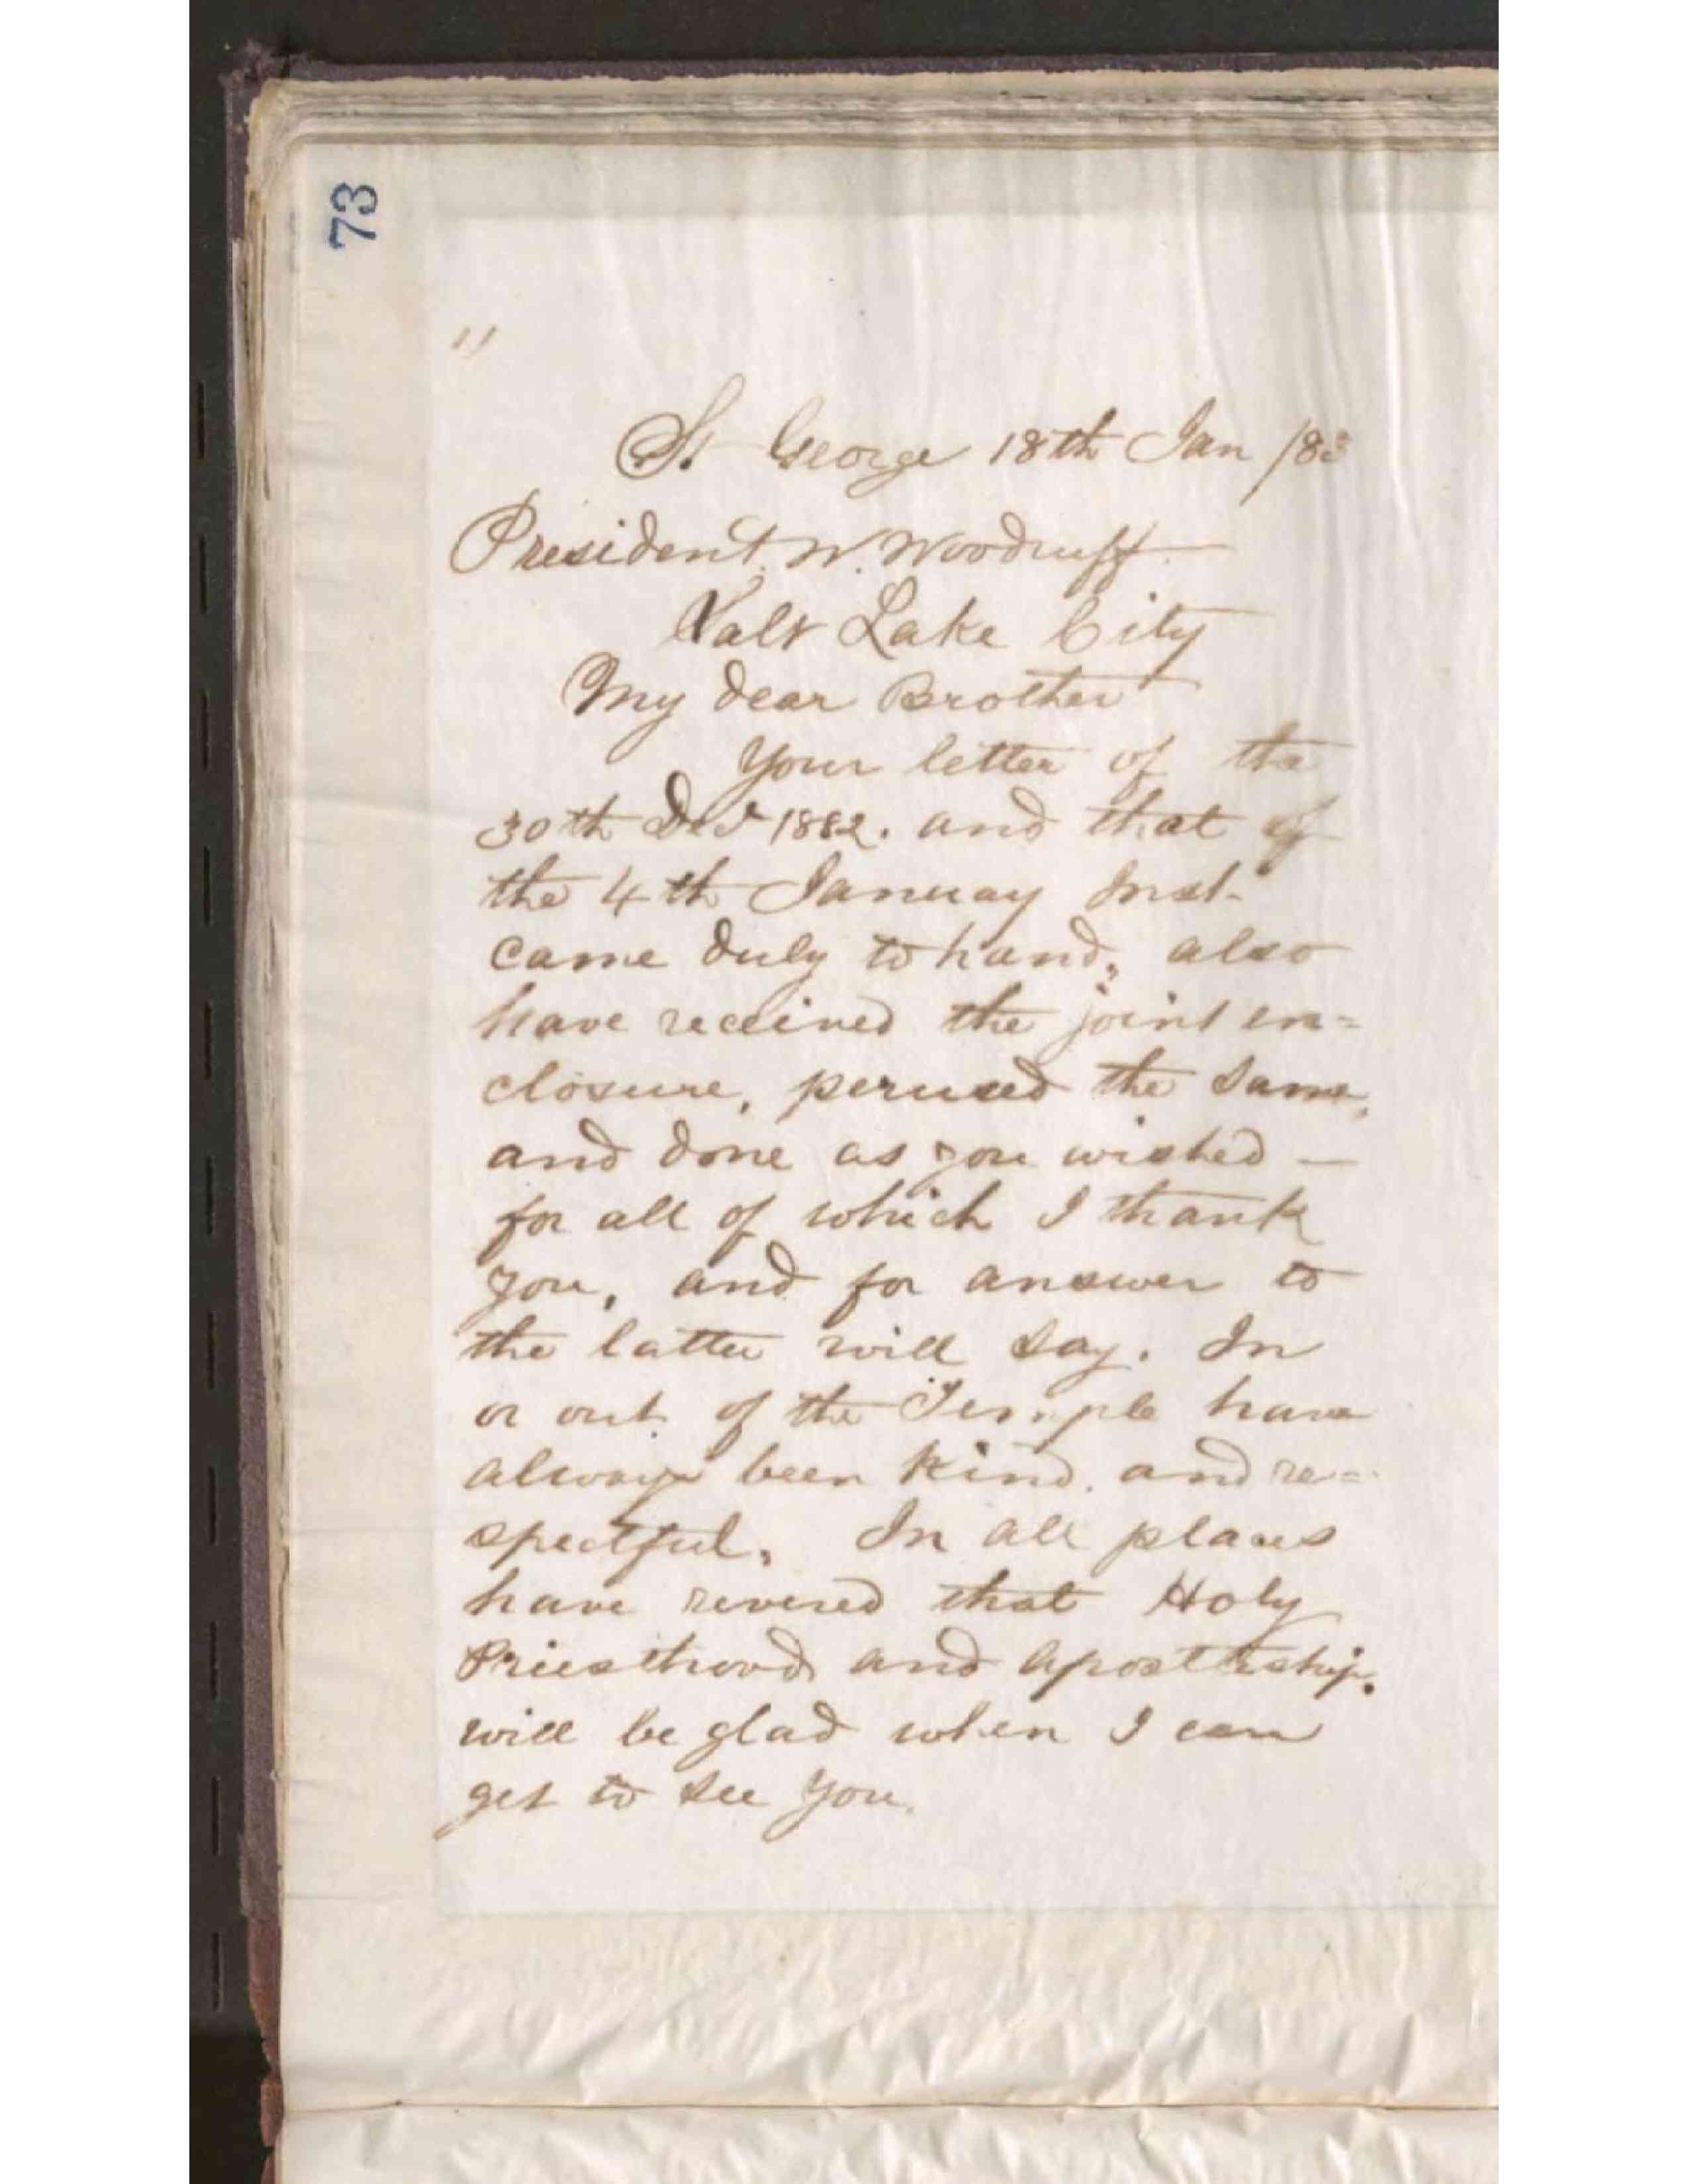 73
"
St George 18th Jan /83
President. W. Woodruff.
Salt Lake City
My dear Brother
Your letter of the
30th Dec 1882. and that of
the 4th Januay Inst.
came duly to hand, also
have received the joint en=
closure, perused the same,
and done as you wished —
for all of which I thank
you, and for answer to
the latter will say. In
or out of the Temple have
always been kind. and re=
spectful. In all places
have revered that Holy
Priesthood and apostleship.
will be glad when I can
get to see you.